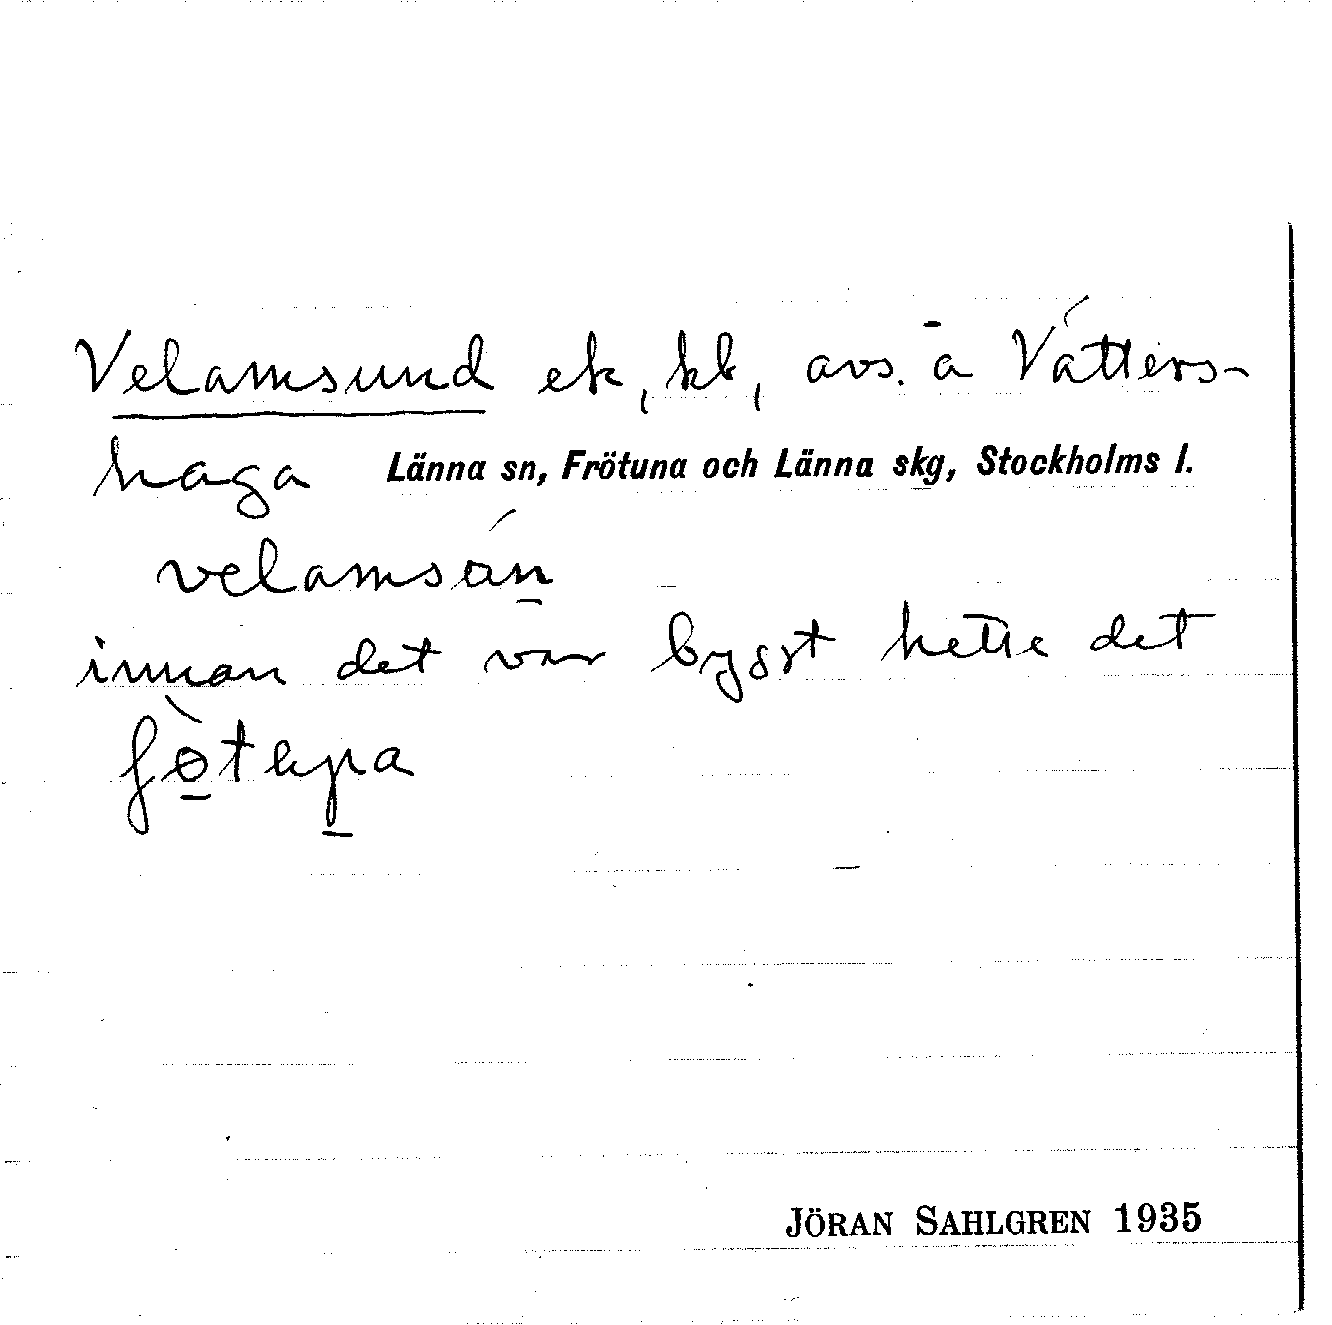 Velamsund ek, kb, avs. å Vátters-
haga Länna sn, Frötuna och Länna skg, Stockholms l.
velamsán̲
innan det var byggt hette det
JÖRAN SAHLGREN 1935